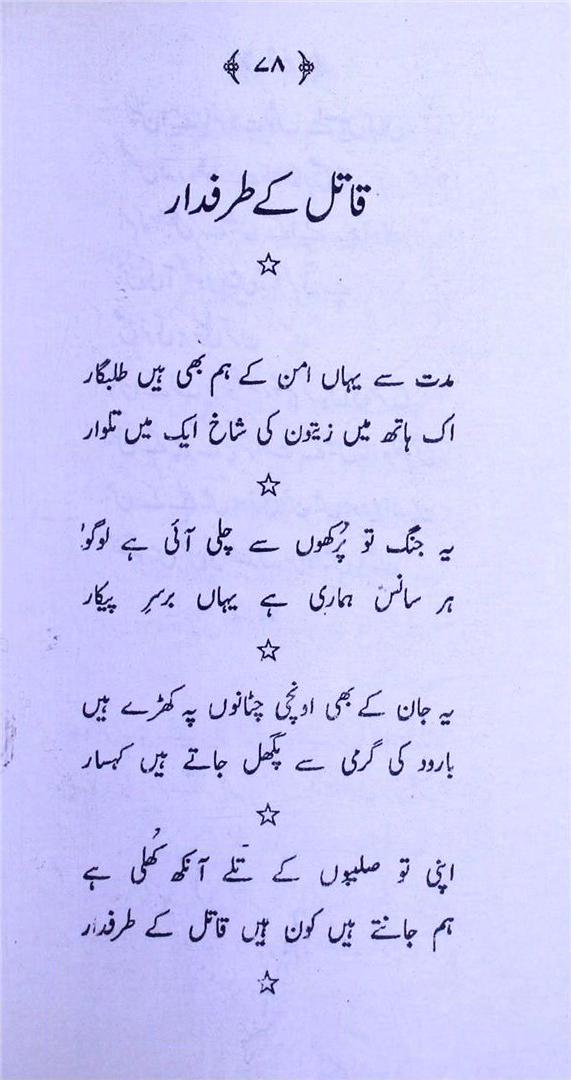 ﴿ ۷۸ ﴾
قاتل کے طرفدار
☆
مدت سے یہاں امن کے ہم بھی ہیں طلبگار
اک ہاتھ میں زیتون کی شاخ ایک میں تلوار
☆
یہ جنگ تو پُرکھوں سے چلی آئی ہے لوگو!
ہر سانس ہماری ہے یہاں برسرِ پیکار
☆
یہ جان کے بھی اونچی چٹانوں پہ کھڑے ہیں
بارود کی گرمی سے پگھل جاتے ہیں کہسار
☆
اپنی تو صلیبوں کے تلے آنکھ کُھلی ہے
ہم جانتے ہیں کون ہیں قاتل کے طرفدار
☆